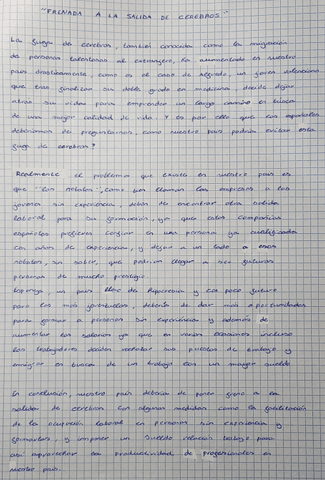 "FRENADA A LA SALIDA DE CEREBROS"
La fuga de cerebros, también conocida como la migración
de personas talentosas al extranjero, ha aumentado en nuestro
país drásticamente, como es el caso de Alfredo, un joven valenciano
que tras finalizar su doble grado en medicina, decide dejar
atrás su vida para emprender un largo camino en busca
de una mejor calidad de vida. Y es por ello que los españoles
deberíamos de preguntarnos, como nuestro país podría evitar esta
fuga de cerebros?
Realmente el problema que existe en nuestro país es
que "los novatos", como los llaman las empresas a los
jóvenes sin experiencia, deben de encontrar otra salida
laboral para su formación, ya que estas compañías
españolas prefieren confiar en una persona ya cualificada
con años de experiencia, y dejan a un lado a esos
novatos, sin saber, que podrían llegar a ser futuras
personas de mucho prestigio.
un país lleno de hipocresía y con poco futuro
para los más jóvenes, debería de dar más oportunidades
para formar a personas sin experiencia y además de
aumentar los salarios ya que en varias ocasiones incluso
los trabajadores deciden rechazar sus puestos de trabajo y
emigrar en busca de un trabajo con un mayor sueldo.
En conclusión, nuestro país debería de poner freno a la
salida de cerebros con algunas medidas como la facilitación
de la ocupación laboral en personas sin experiencia y
formarlos, y imponer un sueldo relación trabajo para
así aprovechar la productividad de profesionales en
nuestro país.